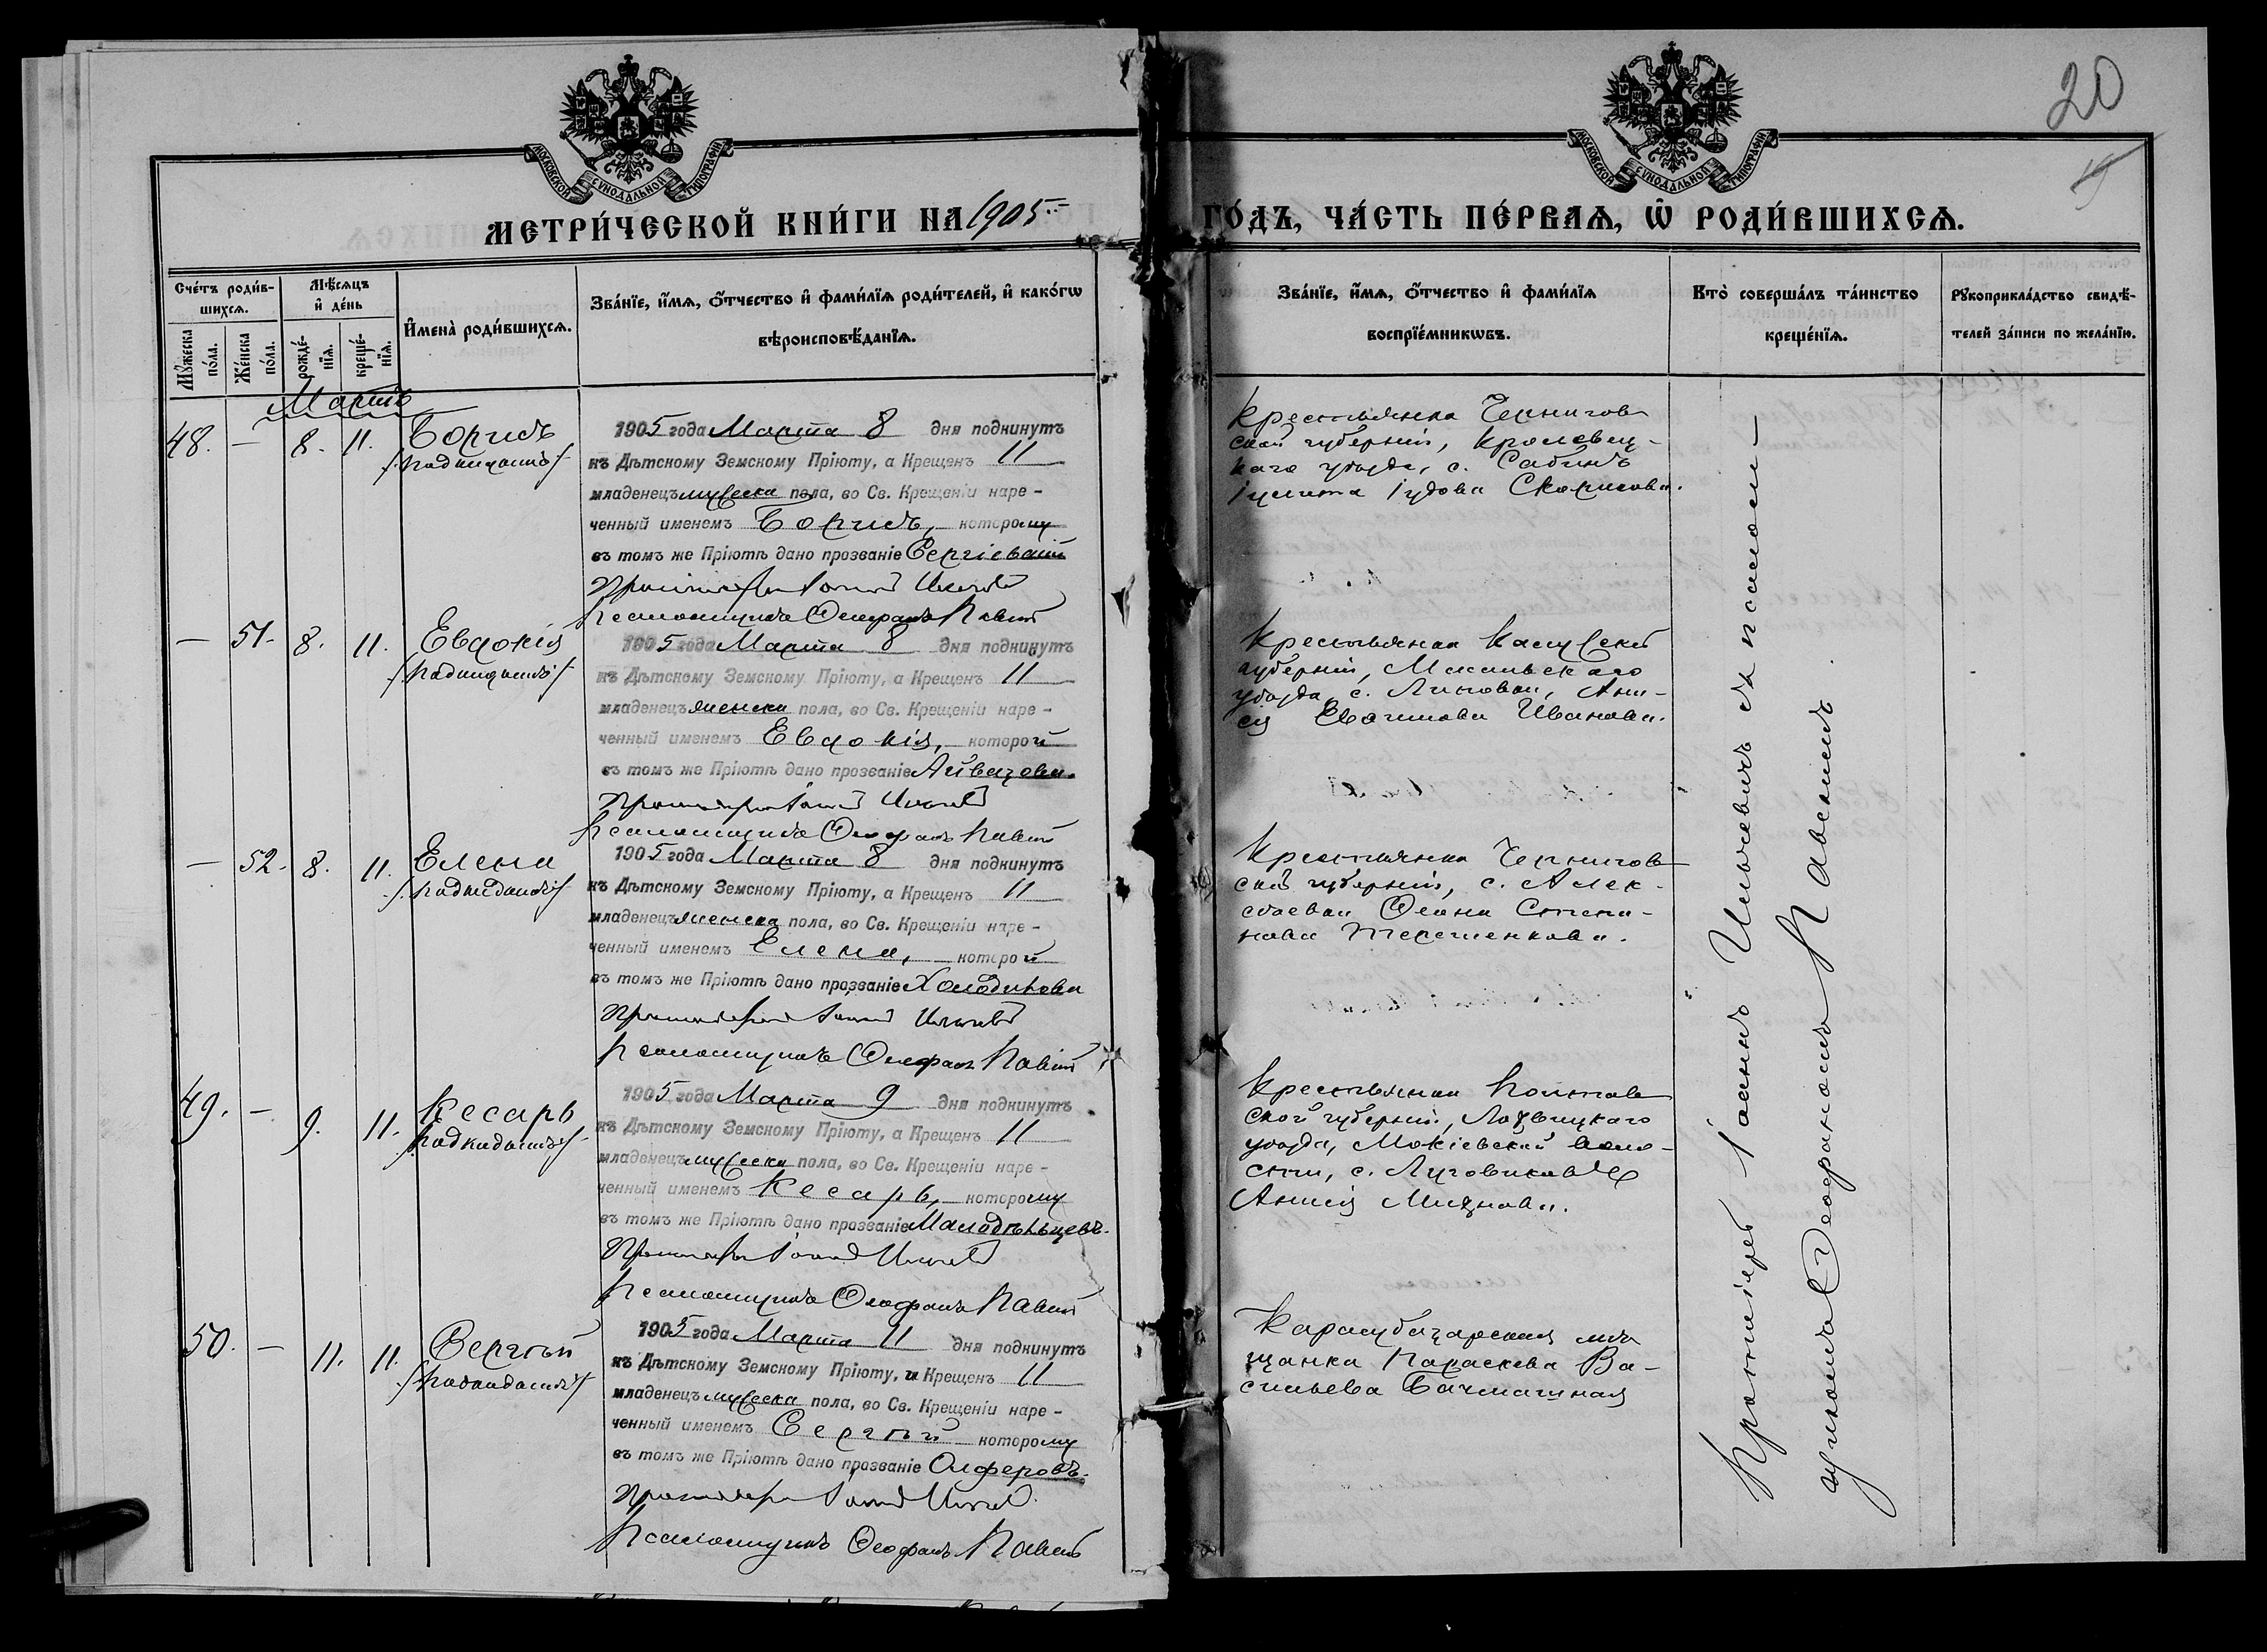 20
МОСКОВСКОЙ СѴНОДАЛЬНОЙ ТИПОГРАФІИ
МОСКОВСКОЙ СѴНОДАЛЬНОЙ ТИПОГРАФІИ
МЕТРИ́ЧЕСКОЙ КНИ́ГИ НА 1905 ГО́ДЪ, ЧА́СТЬ ПЕ́РВАѦ, Ѡ҆ РОДИ́ВШИХСѦ.
Сче́тъ роди́в-
шихсѧ.
Мꙋ́жеска
по́ла.
Же́нска
по́ла.
Мѣ́сѧцъ
и҆ де́нь
рожде́-
нїѧ.
креще́-
нїѧ.
И҆мена̀ роди́вшихсѧ.
Зва́нїе, и҆́мѧ, ѻ҆́тчество и҆ фами́лїѧ роди́телей, и҆ како́гѡ
вѣроисповѣ́данїѧ.
Зва́нїе, и҆́мѧ, ѻ҆́тчество и҆ фами́лїѧ
воспрїе́мникѡвъ.
Кто̀ соверша́лъ та́инство
креще́нїѧ.
Рꙋкоприкла́дство свидѣ́-
телей за́писи по жела́нїю.
Мартъ
48. — 8. 11. Борисъ
/подкидышъ/
1905 года Марта 8 дня подкинутъ
къ Дѣтскому Земскому Пріюту, а Крещенъ 11
младенецъ мужеска пола, во Св. Крещеніи наре-
ченный именемъ Борисъ, которому
въ томъ же Пріютѣ дано прозваніе
Протоіерей Іоаннъ
Псаломщикъ Ѳеофанъ
Крестьянка Чернигов
ской губерніи, Кролевец-
каго уѣзда, с.
— 51. 8. 11. Евдокія
/подкидышъ/
1905 года Марта 8 дня подкинутъ
къ Дѣтскому Земскому Пріюту, а Крещенъ 11
младенецъ женска пола, во Св. Крещеніи наре-
ченный именемъ Евдокія, которой
въ томъ же Пріютѣ дано прозваніе Айвазова.
Протоіерей Іоаннъ
Псаломщикъ Ѳеофанъ
Крестьянка Калужской
губерніи,
уѣзда, с. Ани-
сія Иванова.
— 52. 8. 11. Елена
/подкидышъ/
1905 года Марта 8 дня подкинутъ
къ Дѣтскому Земскому Пріюту, а Крещенъ 11
младенецъ женска пола, во Св. Крещеніи наре-
ченный именемъ Елена, которой
въ томъ же Пріютѣ дано прозваніе Холодикова
Протоіерей Іоаннъ
Псаломщикъ Ѳеофанъ
Крестьянка Чернигов
ской губерніи, с. Алек-
сѣевки Степа-
нова Терешенкова.
49. — 9. 11. Кесарь
/подкидышъ/
1905 года Марта 9 дня подкинутъ
къ Дѣтскому Земскому Пріюту, а Крещенъ 11
младенецъ мужеска пола, во Св. Крещеніи наре-
ченный именемъ Кесарь, которому
въ томъ же Пріютѣ дано прозваніе
Протоіерей Іоаннъ
Псаломщикъ Ѳеофанъ
Крестьянка Полтав
ской губерніи, Лохвицкаго
уѣзда, Мокіевской воло-
сти, с.
Анисія
50. — 11. 11. Сергѣй
/подкидышъ/
1905 года Марта 11 дня подкинутъ
къ Дѣтскому Земскому Пріюту, и Крещенъ 11
младенецъ мужеска пола, во Св. Крещеніи наре-
ченный именемъ Сергѣй которому
въ томъ же Пріютѣ дано прозваніе Олферовъ.
Протоіерей Іоаннъ
Псаломщикъ Ѳеофанъ
Карасубазарская мѣ
щанка Параскева Ва-
сильева
Протоіерей Іоаннъ съ псалом-
щикомъ Ѳеофаномъ